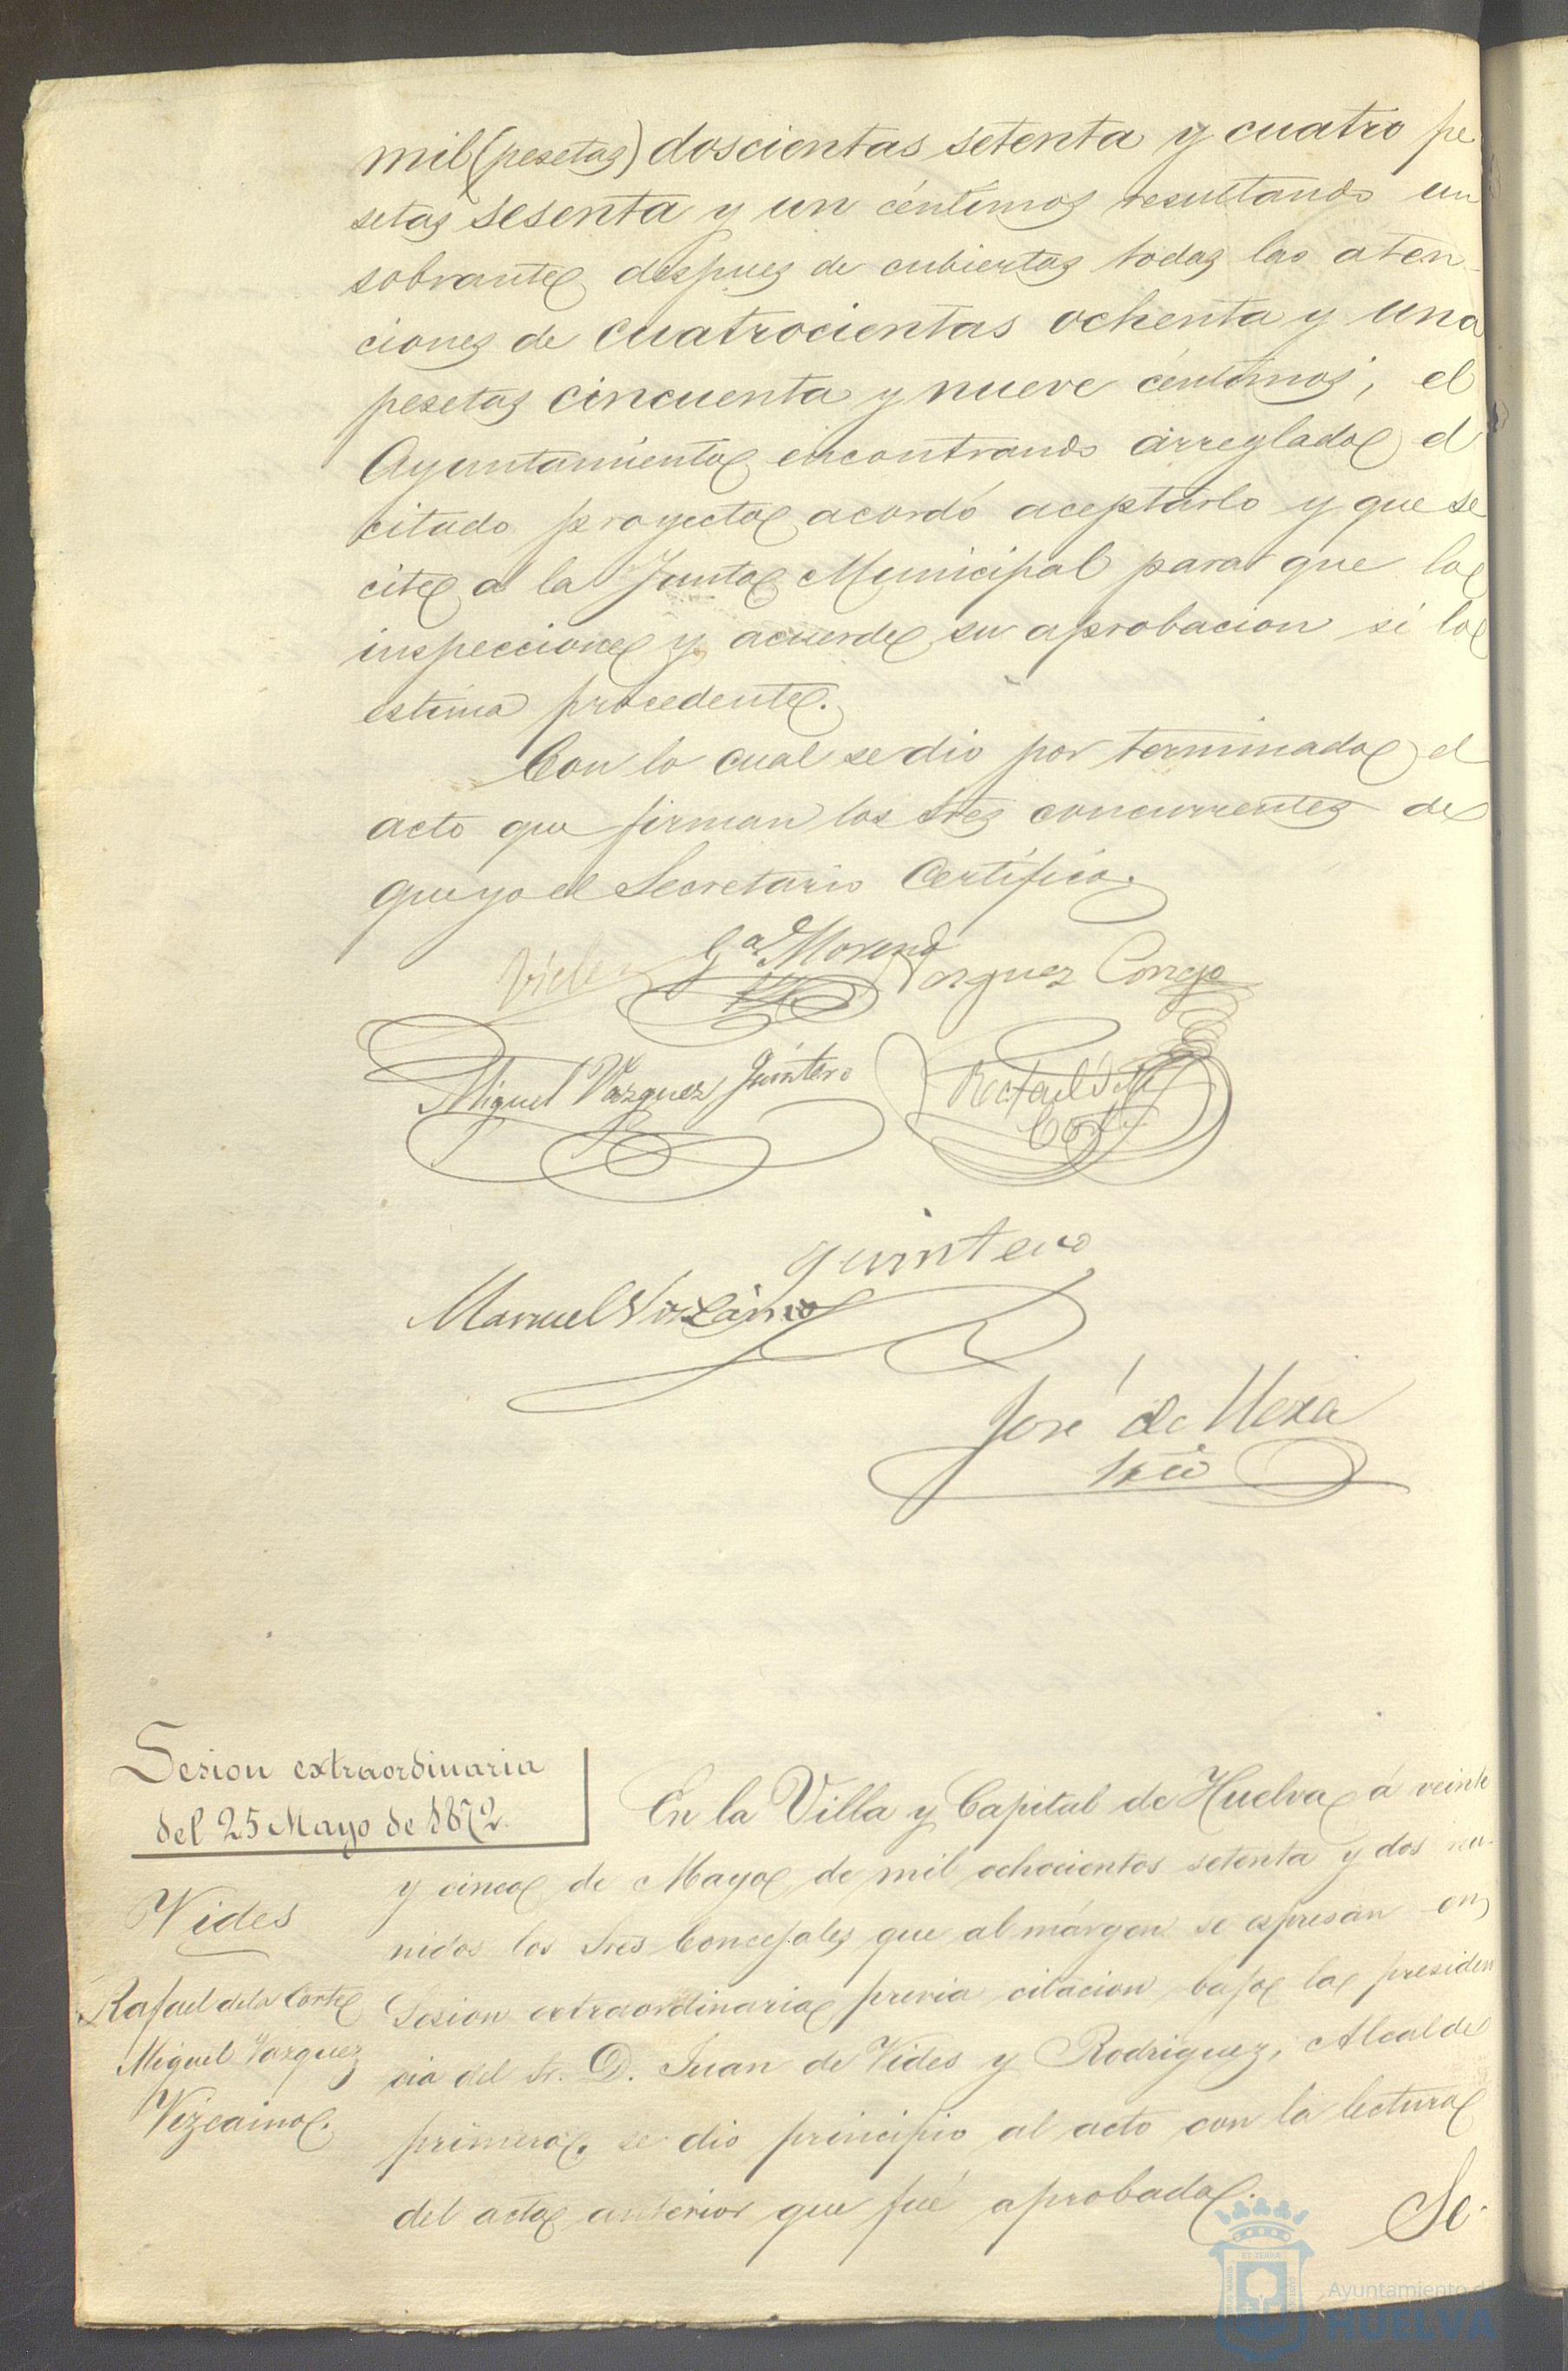 mil (pesetas) doscientas setenta y cuatro pe
setas sesenta y un céntimos resultando un
sobrante despues de cubiertas todas las aten-
ciones de cuatrocientas ochenta y una
pesetas cincuenta y nueve céntimos; el
Ayuntamiento encontrando arreglado el
citado proyecto acordó aceptarlo y que se
cite a la Junta Municipal para que lo
inspeccione y acuerde su aprobacion si lo
estima procedente.
Con lo cual se dio por terminado el
acto que firman los Sres concurrentes de
que yo el Secretario Certifico.
Vides Ga. Moreno Vazquez Conejo
Miguel Vazquez Quintero Rafael de la
Corte
Quintero
Manuel Vizcaino
José de Mexa
Srio
Sesion extraordinaria
del 25 Mayo de 1872.
Vides
Rafael de la Corte
Miguel Vazquez
Vizcaino.
En la Villa y Capital de Huelva á veinte
y cinco de Mayo de mil ochocientos setenta y dos reu-
nidos los Sres Concejales que al márgen se espresan en
Sesion extraordinaria previa citacion, bajo la presiden
cia del Sr. D. Juan de Vides y Rodriguez, Alcalde
primero, se dio principio al acto con la lectura
del acta anterior que fué aprobada.
Se-
Ayuntamiento de
HUELVA